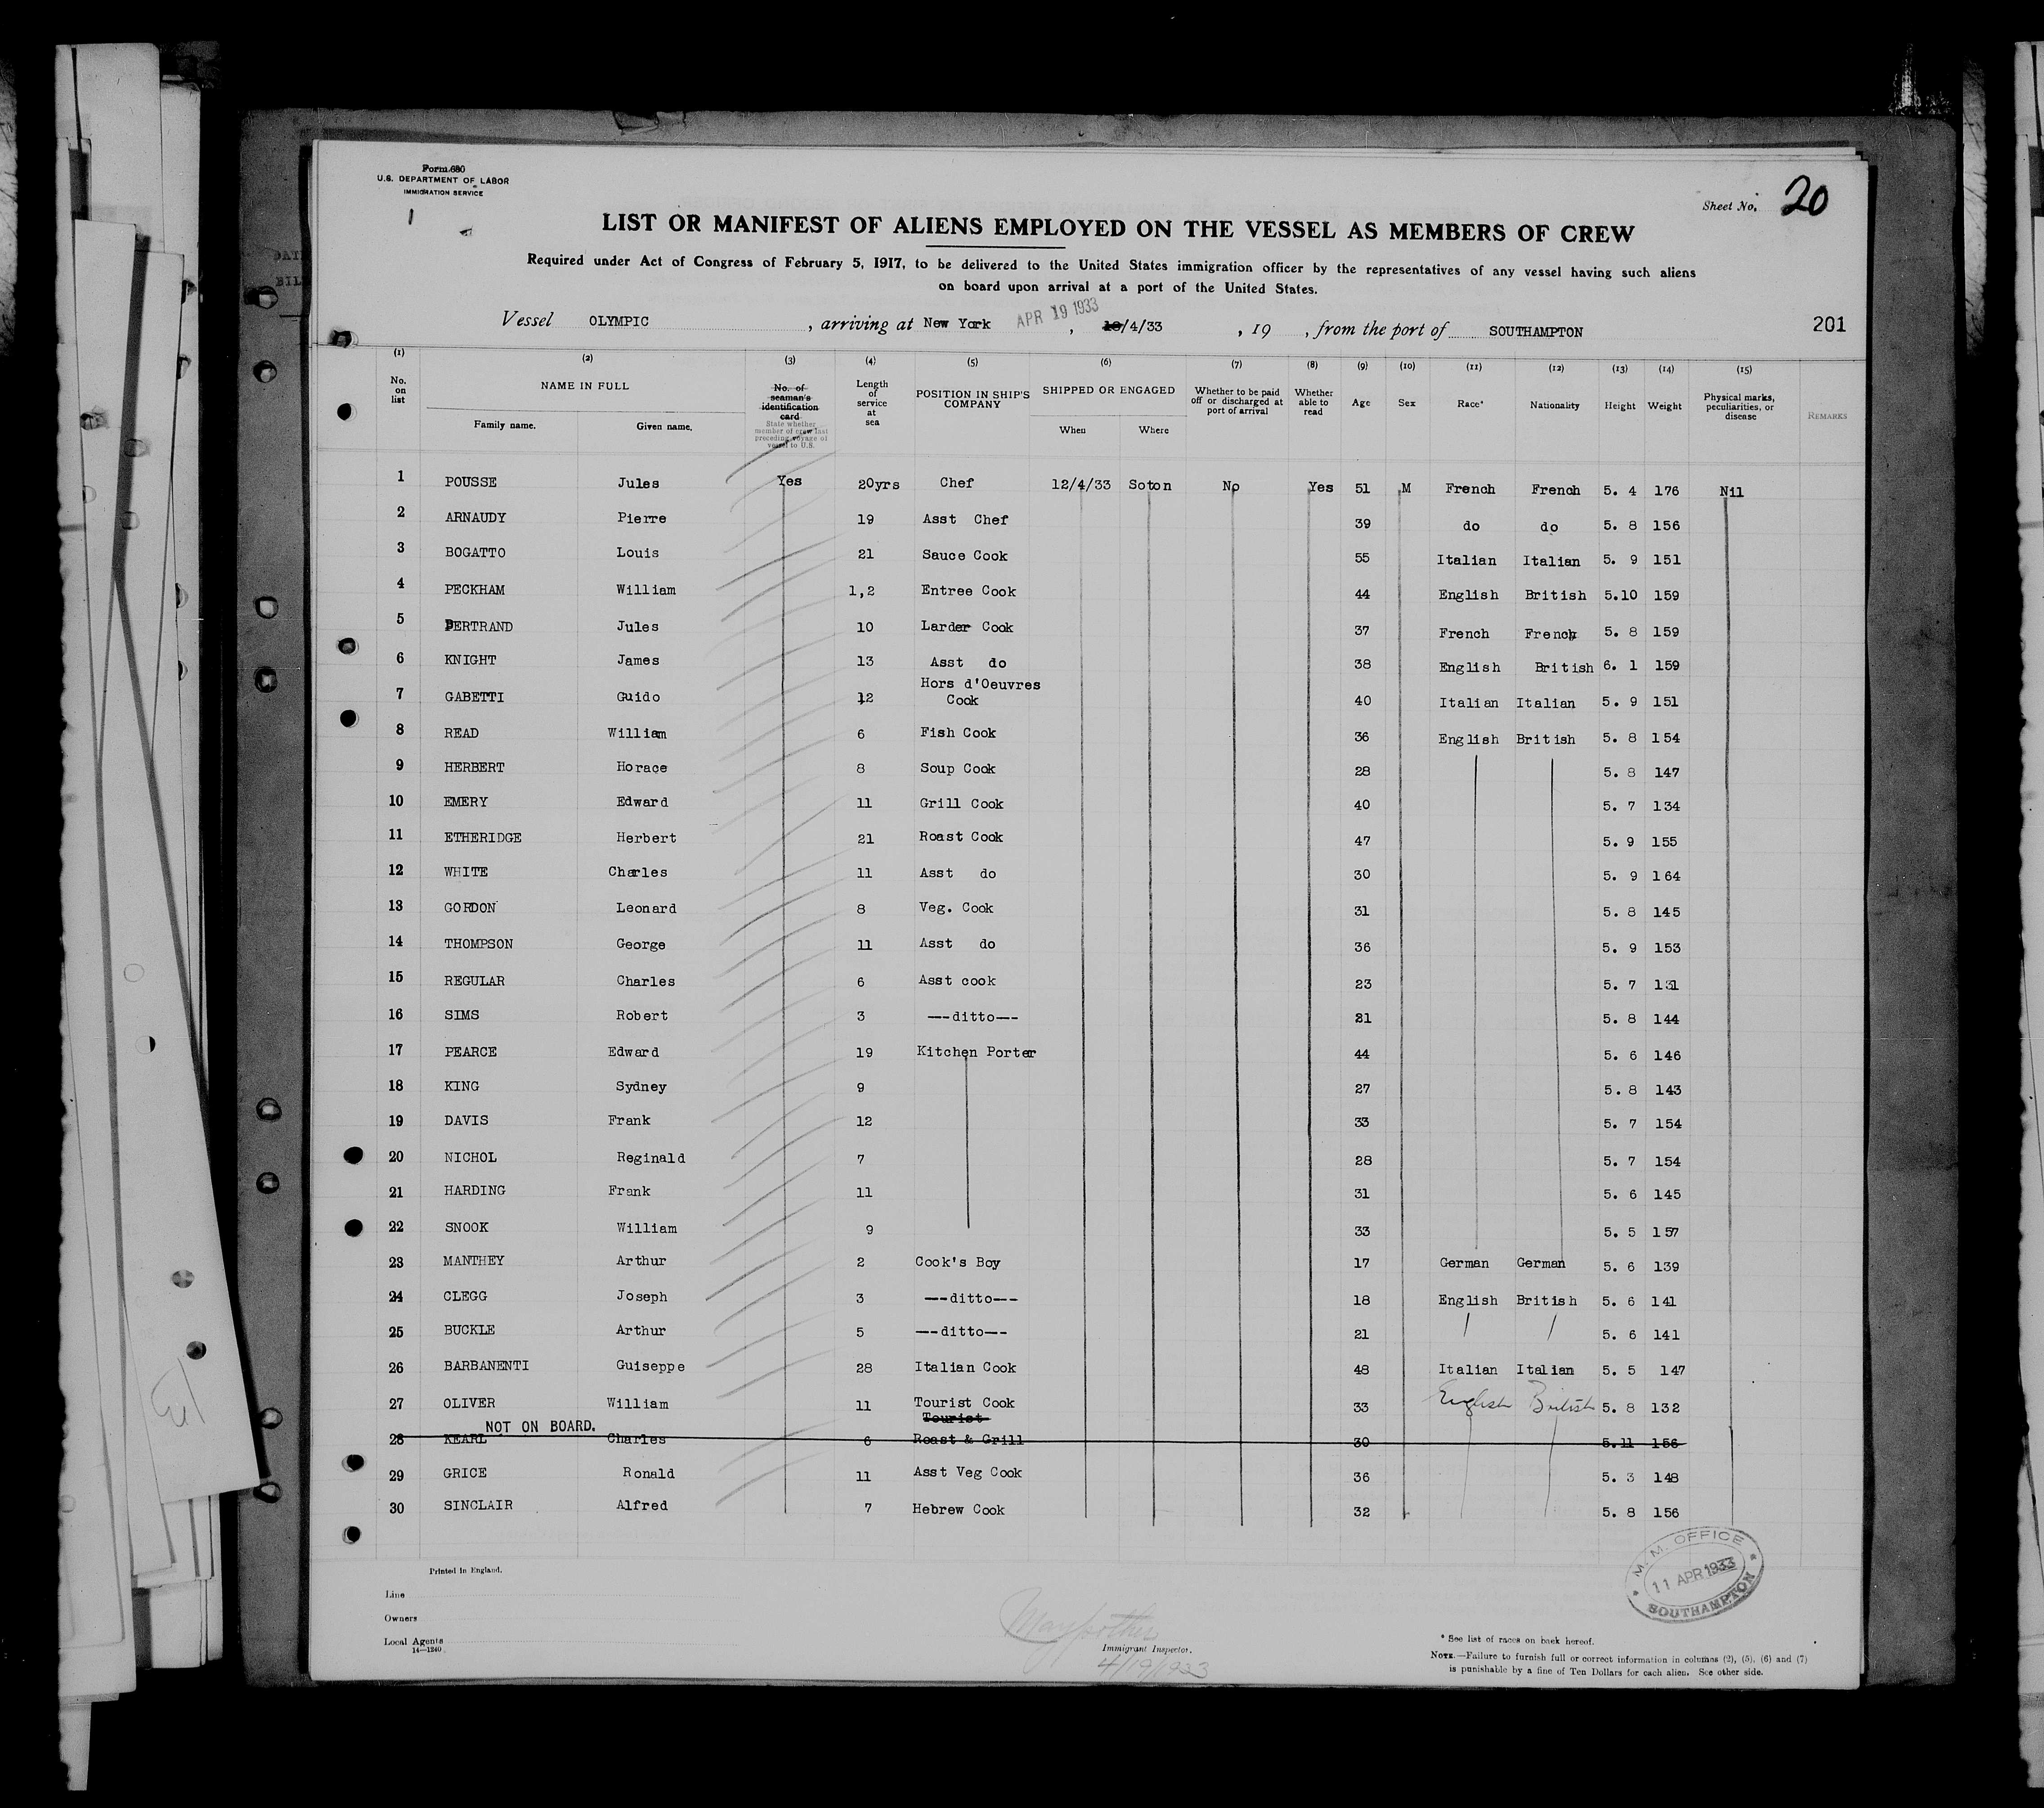 Form 680
U.S. DEPARTMENT OF LABOR
IMMIGRATION SERVICE
Sheet No. 20
LIST OR MANIFEST OF ALIENS EMPLOYED ON THE VESSEL AS MEMBERS OF CREW
Required under Act of Congress of February 5, 1917, to be delivered to the United States immigration officer by the representatives of any vessel having such aliens
on board upon arrival at a port of the United States.
Vessel OLYMPIC, arriving at New York APR 19 1933, /4/33, 19 , from the port of SOUTHAMPTON 201
(1) (2) (3) (4) (5) (6) (7) (8) (9) (10) (11) (12) (13) (14) (15)
No. on list NAME IN FULL Family name. Given name. No. of seaman's identification card State whether member of crew last preceding voyage of vessel to U.S. Length of service at sea POSITION IN SHIP'S COMPANY SHIPPED OR ENGAGED When Where Whether to be paid off or discharged at port of arrival Whether able to read Age Sex Race* Nationality Height Weight Physical marks, peculiarities, or disease REMARKS
1 POUSSE Jules Yes 20yrs Chef 12/4/33 Soton No Yes 51 M French French 5. 4 176 Nil
2 ARNAUDY Pierre 19 Asst Chef 39 do do 5. 8 156
3 BOGATTO Louis 21 Sauce Cook 55 Italian Italian 5. 9 151
4 PECKHAM William 1,2 Entree Cook 44 English British 5.10 159
5 BERTRAND Jules 10 Larder Cook 37 French French 5. 8 159
6 KNIGHT James 13 Asst do 38 English British 6. 1 159
7 GABETTI Guido 12 Hors d'Oeuvres Cook 40 Italian Italian 5. 9 151
8 READ William 6 Fish Cook 36 English British 5. 8 154
9 HERBERT Horace 8 Soup Cook 28 5. 8 147
10 EMERY Edward 11 Grill Cook 40 5. 7 134
11 ETHERIDGE Herbert 21 Roast Cook 47 5. 9 155
12 WHITE Charles 11 Asst do 30 5. 9 164
13 GORDON Leonard 8 Veg. Cook 31 5. 8 145
14 THOMPSON George 11 Asst do 36 5. 9 153
15 REGULAR Charles 6 Asst cook 23 5. 7 131
16 SIMS Robert 3 ---ditto--- 21 5. 8 144
17 PEARCE Edward 19 Kitchen Porter 44 5. 6 146
18 KING Sydney 9 27 5. 8 143
19 DAVIS Frank 12 33 5. 7 154
20 NICHOL Reginald 7 28 5. 7 154
21 HARDING Frank 11 31 5. 6 145
22 SNOOK William 9 33 5. 5 157
23 MANTHEY Arthur 2 Cook's Boy 17 German German 5. 6 139
24 CLEGG Joseph 3 ---ditto--- 18 English British 5. 6 141
25 BUCKLE Arthur 5 ---ditto--- 21 5. 6 141
26 BARBANENTI Guiseppe 28 Italian Cook 48 Italian Italian 5. 5 147
27 OLIVER William 11 Tourist Cook 33 English British 5. 8 132
NOT ON BOARD. Tourist
28 KEARL Charles 6 Roast & Grill 30 5.11 156
29 GRICE Ronald 11 Asst Veg Cook 36 5. 3 148
30 SINCLAIR Alfred 7 Hebrew Cook 32 5. 8 156
M. M. OFFICE
11 APR 1933
SOUTHAMPTON
Printed in England.
Line
Owners
Local Agents
14—1240
Immigrant Inspector.
4/19/1933
* See list of races on back hereof.
NOTE.—Failure to furnish full or correct information in columns (2), (5), (6) and (7)
is punishable by a fine of Ten Dollars for each alien. See other side.